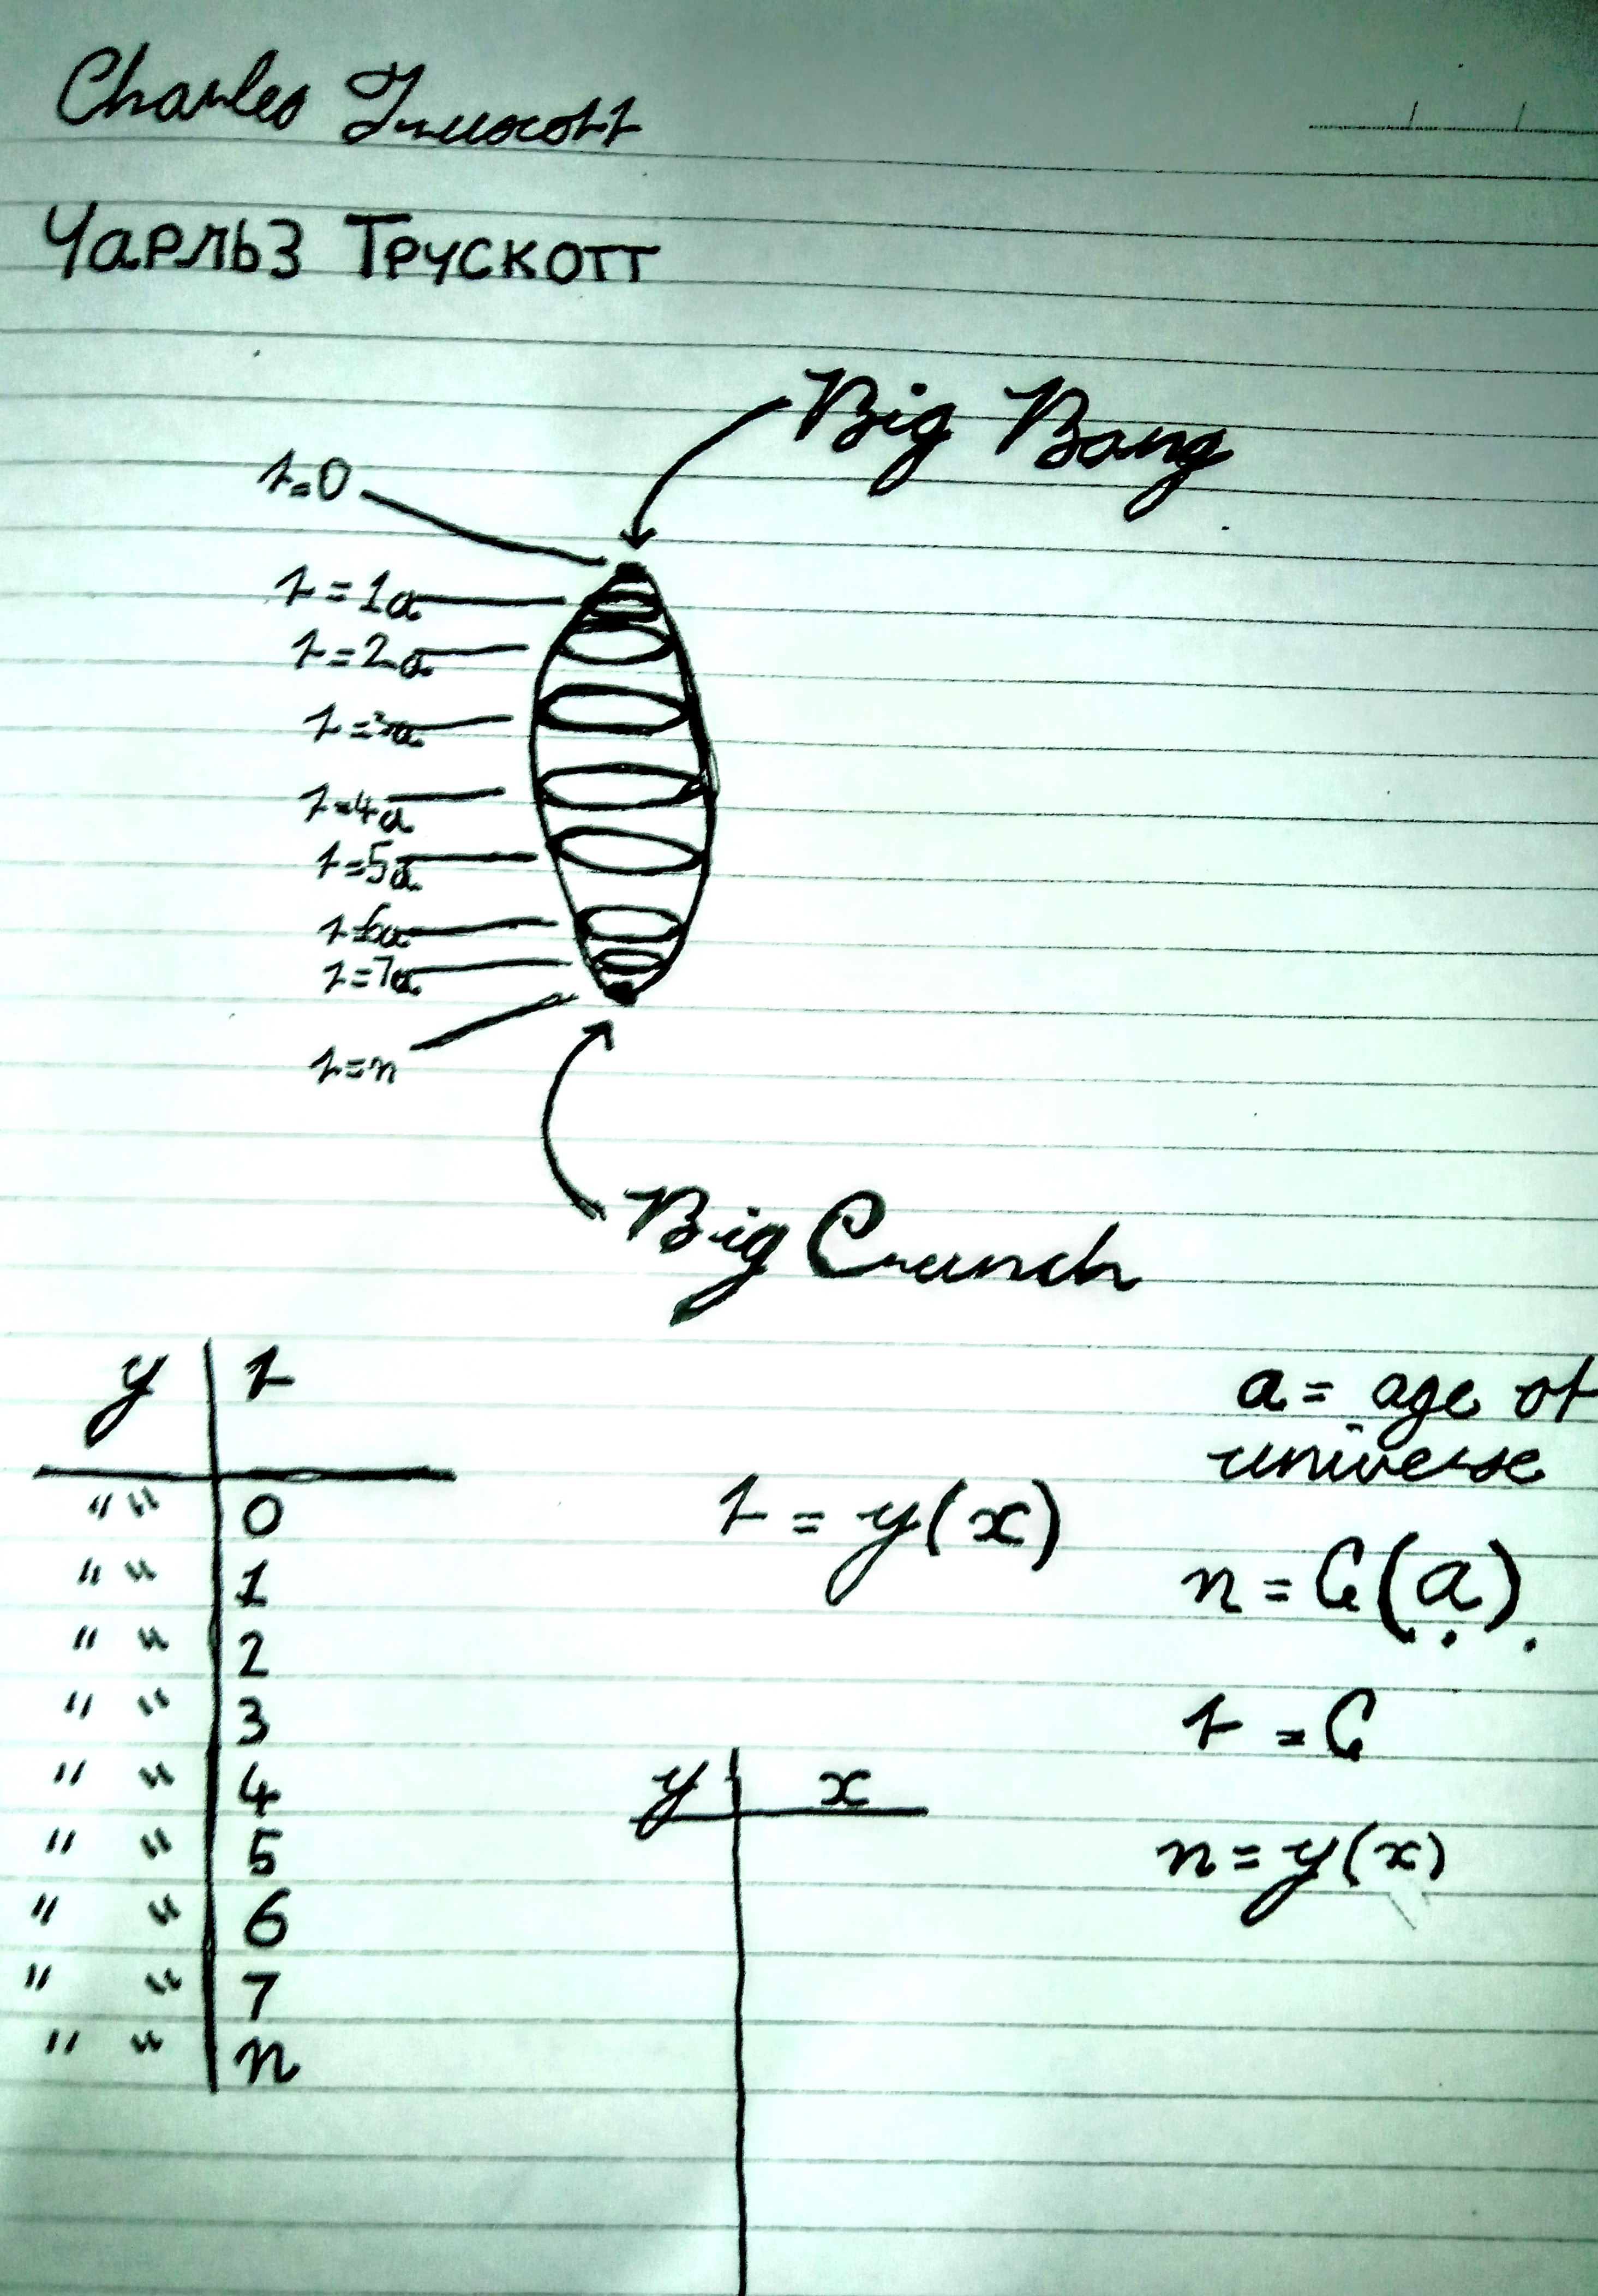 Charles Truscott
Чарльз Трускотт
Big Bang
t=0
t=1a
t=2a
t=3a
t=4a
t=5a
t=6a
t=7a
t=n
Big Crunch
y | t
" " | 0
" " | 1
" " | 2
" " | 3
" " | 4
" " | 5
" " | 6
" " | 7
" " | n
t = y(x)
y | x
a = age of
universe
n = C(a).
t = C
n = y(x)